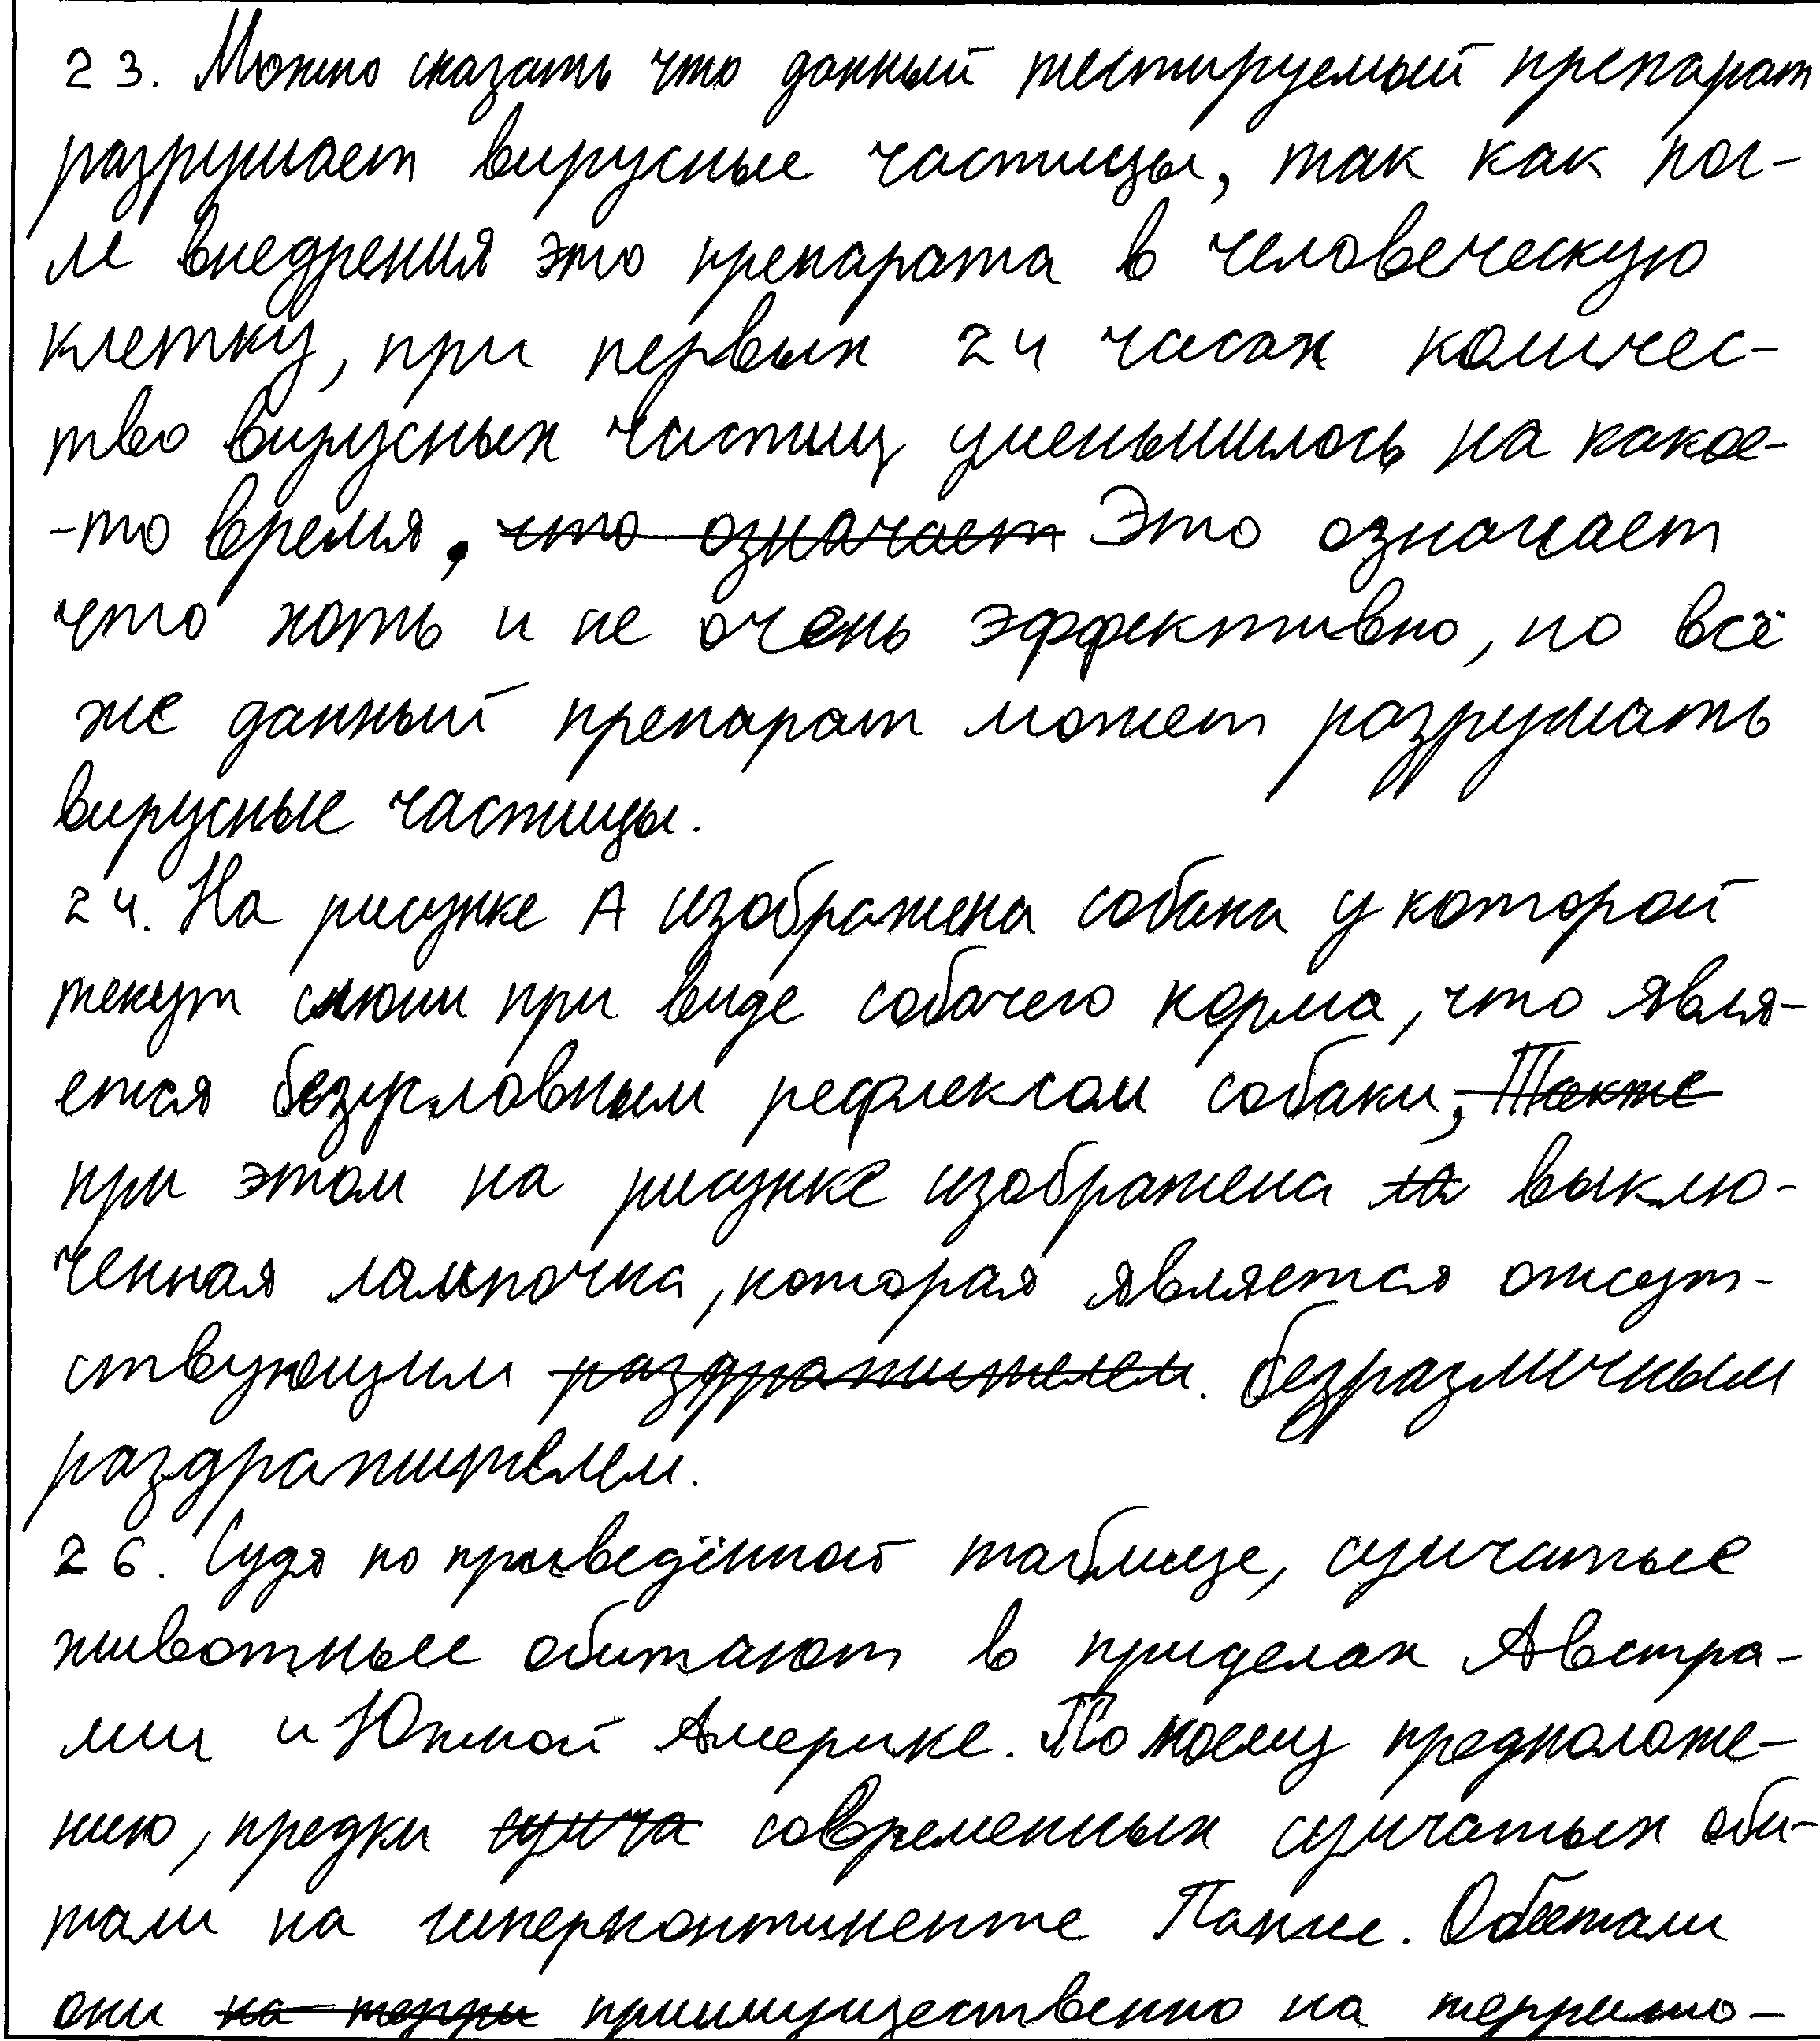 23. Можно сказать что данный тестируемый препарат
разрушает вирусные частицы, так как пос-
ле внедрения это препарата в человеческую
клетку, при первых 24 часах количес-
тво вирусных частиц уменьшилось на какое-
-то время. что означает Это означает
что хоть и не очень эффективно, но всё
же данный препарат может разрушать
вирусные частицы.
24. На рисунке А изображена собака у которой
текут слюни при виде собачего корма, что явля-
ется безусловным рефлексом собаки, Также
при этом на рисунке изображена ла выклю-
ченная лампочка, которая является отсут-
ствующим раздражителем. безразличным
раздражителем.
26. Судя по приведённой таблице, сумчатые
животные обитают в приделах Австра-
лии и Южной Америке. По моему предположе-
нию, предки сумча современных сумчатых оби-
тали на гиперконтиненте Пангее. Обитали
они на терри приимущественно на террито-